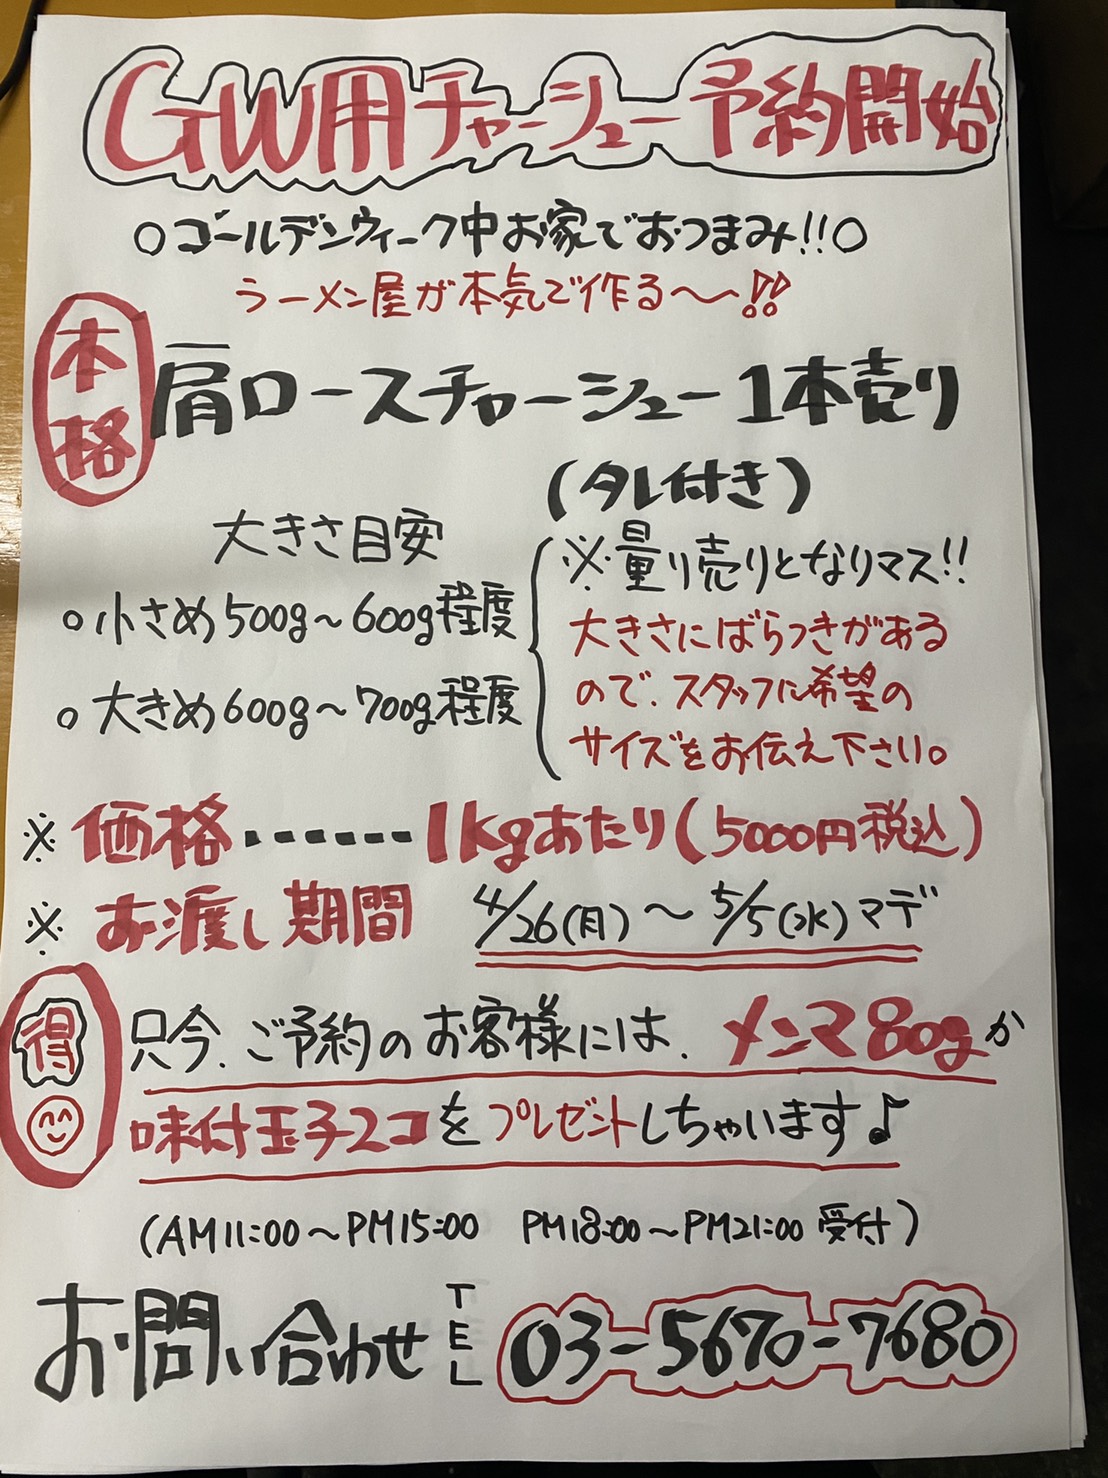 GW用チャーシュー予約開始
○ゴールデンウィーク中お家でおつまみ!!○
ラーメン屋が本気で作る〜〜!!
本格
肩ロースチャーシュー1本売り
(タレ付き)
大きさ目安
○小さめ500g〜600g程度
○大きめ600g〜700g程度
※量り売りとなりマス!!
大きさにばらつきがある
ので、スタッフに希望の
サイズをお伝え下さい。
※価格・・・・・・1kgあたり(5000円税込)
※お渡し期間 4/26(月)〜5/5(水)マデ
得
只今、ご予約のお客様には、メンマ80gか
味付玉子2コをプレゼントしちゃいます♪
(AM11:00〜PM15:00 PM18:00〜PM21:00 受付)
お問い合わせ TEL 03-5670-7680